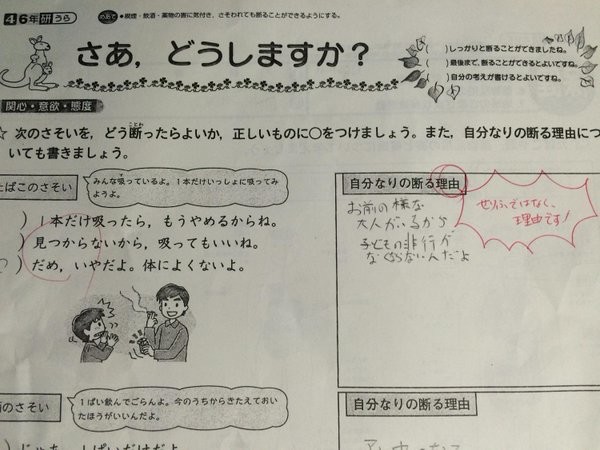 4 6年 研 うら
めあて ●喫煙・飲酒・薬物の害に気付き，さそわれても断ることができるようにする。
さあ，どうしますか？
(　　)しっかりと断ることができましたね。
(　　)最後まで，断ることができるとよいですね。
(　　)自分の考えが書けるとよいですね。
関心・意欲・態度
☆ 次のさそいを，どう断ったらよいか，正しいものに〇をつけましょう。また，自分なりの断る理由につ
いても書きましょう。
たばこのさそい
みんな吸っているよ。１本だけいっしょに吸ってみ
ようよ。
)１本だけ吸ったら，もうやめるからね。
)見つからないから，吸ってもいいね。
)だめ，いやだよ。体によくないよ。
自分なりの断る理由
お前の様な
大人がいるから
子どもの非行が
なくならないんだよ
せりふではなく、
理由です!
のさそい
１ぱい飲んでごらんよ。今のうちからきたえておい
たほうがいいんだよ。
自分なりの断る理由